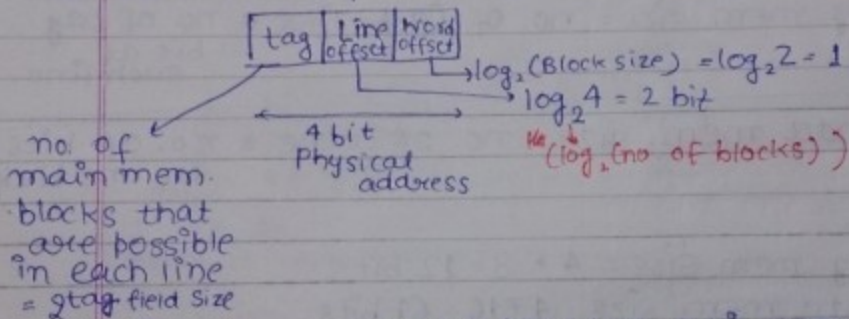 tag | Line offset | Word offset
→ log₂ (Block size) = log₂2 = 1
→ log₂4 = 2 bit
(log₂ (no of blocks))
4 bit
Physical
address
no. of
main mem.
blocks that
are possible
in each line
= 2tag field size